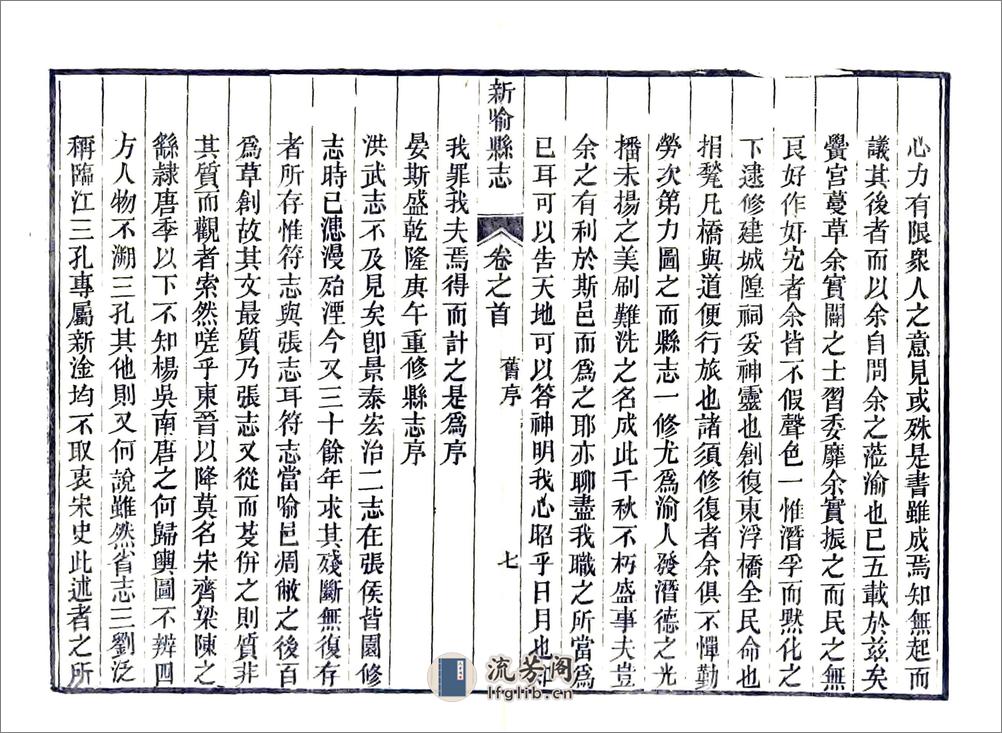 心力有限衆人之意見或殊是書雖成焉知無起而
議其後者而以余自問余之蒞渝也已五載於玆矣
黌宮蔓草余實闢之士習委靡余實振之而民之無
良好作奸宄者余皆不假聲色一惟潛孚而默化之
下逮修建城隍祠妥神靈也創復東浮橋全民命也
捐凳凡橋與道便行旅也諸須修復者余俱不憚勤
勞次第力圖之而縣志一修尤爲渝人發潛德之光
播未揚之美刷難洗之名成此千秋不朽盛事夫豈
余之有利於斯邑而爲之耶亦聊盡我職之所當爲
已耳可以告天地可以答神明我心昭乎日月也
新喻縣志
卷之首
舊序
七
我罪我夫焉得而計之是爲序
晏斯盛乾隆庚午重修縣志序
洪武志不及見矣卽景泰宏治二志在張侯皆園修
志時已漶漫殆湮今又三十餘年求其殘斷無復存
者所存惟符志與張志耳符志當喻邑凋敝之後百
爲草創故其文最質乃張志又從而芟倂之則質非
其質而觀者索然嗟乎東晉以降莫名宋齊梁陳之
繇隸唐季以下不知楊吳南唐之何歸輿圖不辨四
方人物不溯三孔其他則又何說雖然省志三劉泛
稱臨江三孔專屬新淦均不取衷宋史此述者之所
流芳阁
lfglib.cn